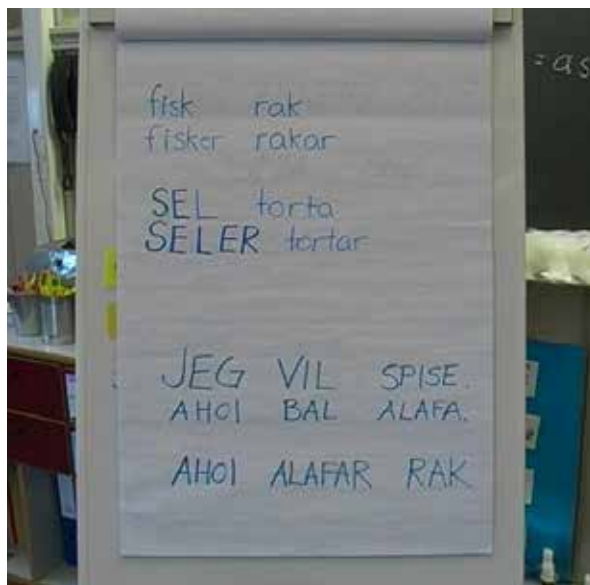 fisk rak
fisker rakar
SEL torta
SELER tortar
JEG VIL SPISE.
AHOI BAL ALAFA.
AHOI ALAFAR RAK
= as